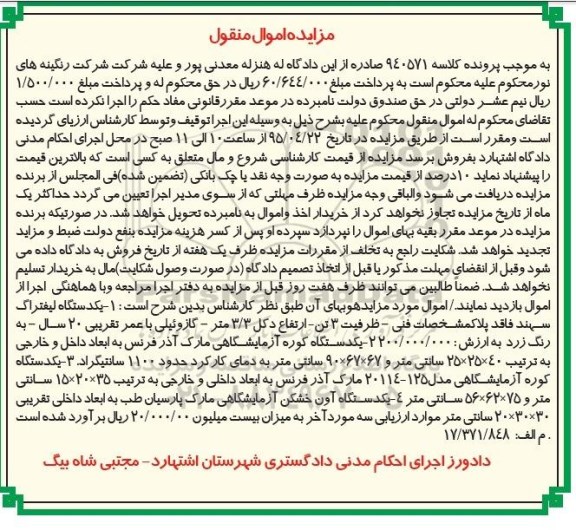 مزایده اموال منقول
به موجب پرونده کلاسه ۹۴۰۵۷۱ صادره از این دادگاه له هنزله معدنی پور و علیه شرکت شرکت رنگینه های
نورمحکوم علیه محکوم است به پرداخت مبلغ ۶۰/۶۴۴/۰۰۰ ریال در حق محکوم له و پرداخت مبلغ ۱/۵۰۰/۰۰۰
ریال نیم عشر دولتی در حق صندوق دولت نامبرده در موعد مقررقانونی مفاد حکم را اجرا نکرده است حسب
تقاضای محکوم له اموال منقول محکوم علیه بشرح ذیل به وسیله این اجرا توقیف وتوسط کارشناس ارزیابی گردیده
است ومقرر است از طریق مزایده در تاریخ ۹۵/۰۴/۲۲ از ساعت ۱۰ الی ۱۱ صبح در محل اجرای احکام مدنی
دادگاه اشتهارد بفروش برسد مزایده از قیمت کارشناسی شروع و مال متعلق به کسی است که بالاترین قیمت
را پیشنهاد نماید ۱۰درصد از قیمت مزایده به صورت وجه نقد یا چک بانکی (تضمین شده)فی المجلس از برنده
مزایده دریافت می شود والباقی وجه مزایده ظرف مهلتی که از سوی مدیر اجرا تعیین می گردد حداکثر یک
ماه از تاریخ مزایده تجاوز نخواهد کرد از خریدار اخذ واموال به نامبرده تحویل خواهد شد. در صورتیکه برنده
مزایده در موعد مقرر بقیه بهای اموال را نپردازد سپرده او پس از کسر هزینه مزایده بنفع دولت ضبط و مزاید
تجدید خواهد شد. شکایت راجع به تخلف از مقررات مزایده ظرف یک هفته از تاریخ فروش به دادگاه داده می
شود وقبل از انقضای مهلت مذکور یا قبل از اتخاذ تصمیم دادگاه (در صورت وصول شکایت)مال به خریدار تسلیم
نخواهد شد. ضمناً طالبین می توانند ظرف هفت روز قبل از مزایده به دفتر اجرا مراجعه وبا هماهنگی اجرا از
اموال بازدید نمایند./ اموال مورد مزایدهوبهای آن طبق نظر کارشناس بدین شرح است: ۱-یکدستگاه لیفتراک
سهند فاقد پلاکمشخصات فنی - ظرفیت ۳ تن- ارتفاع دکل ۳/۳ متر - گازوئیلی با عمر تقریبی ۲۰ سال - به
رنگ زرد به ارزش: ۲۰۰/۰۰۰/۰۰۰ ۲-یکدستگاه کوره آزمایشگاهی مارک آذر فرنس به ابعاد داخل و خارجی
به ترتیب ۴۰×۲۵×۲۵ سانتی متر و ۶۷×۶۷×۹۰ سانتی متر به دمای کارکرد حدود ۱۱۰۰ سانتیگراد. ۳-یکدستگاه
کوره آزمایشگاهی مدل۱۲۵-۲۰۱۱۴ مارک آذر فرنس به ابعاد داخلی و خارجی به ترتیب ۳۵×۲۰×۱۵ سانتی
متر و ۷۵×۶۲×۵۶ سانتی متر ۴-یکدستگاه آون خشکن آزمایشگاهی مارک پارسیان طب به ابعاد داخلی تقریبی
۳۰×۳۰×۲۰ سانتی متر موارد ارزیابی سه مورد آخر به میزان بیست میلیون ۲۰/۰۰۰/۰۰ ریال برآورد شده است
. م الف: ۱۷/۳۷۱/۸۴۸
دادورز اجرای احکام مدنی دادگستری شهرستان اشتهارد- مجتبی شاه بیگ